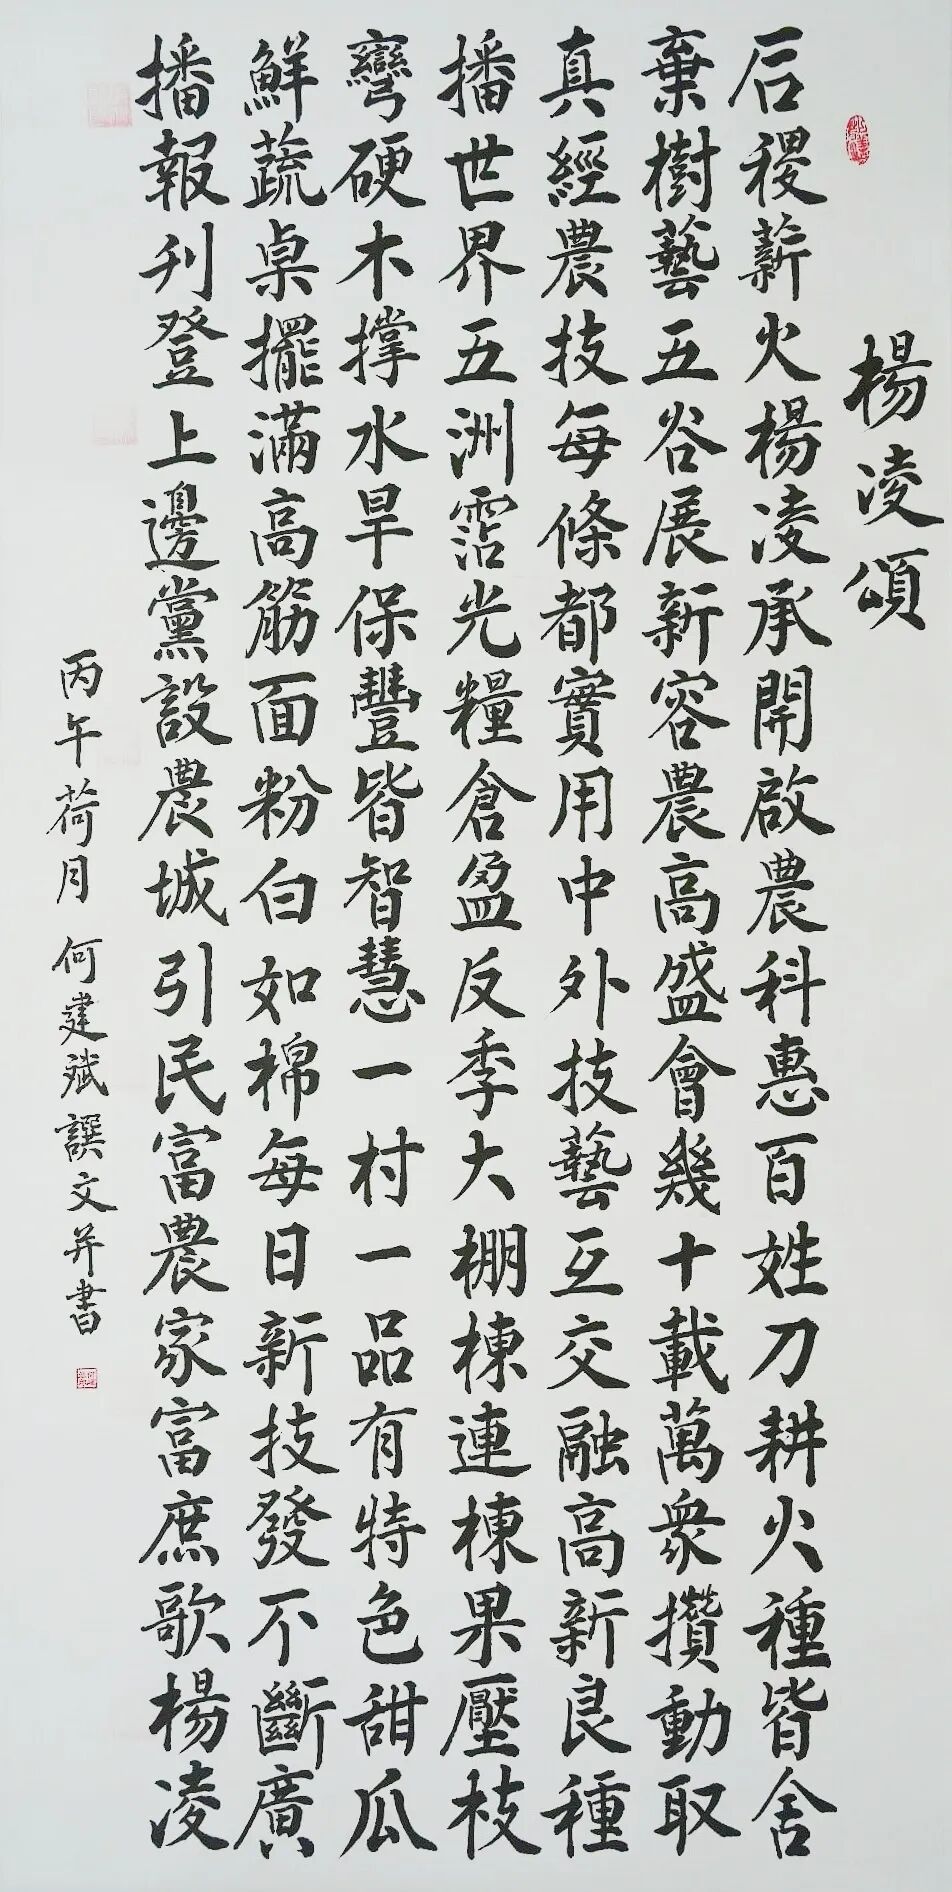 楊凌頌
后稷薪火楊凌承開啟農科惠百姓刀耕火種皆舍
棄樹藝五谷展新容農高盛會幾十載萬衆攢動取
真經農技每條都實用中外技藝互交融高新良種
播世界五洲霑光糧倉盈反季大棚棟連棟果壓枝
彎硬木撐水旱保豐皆智慧一村一品有特色甜瓜
鮮蔬桌擺滿高筋面粉白如棉每日新技發不斷廣
播報刊登上邊黨設農城引民富農家富庶歌楊凌
丙午荷月何建斌譔文并書